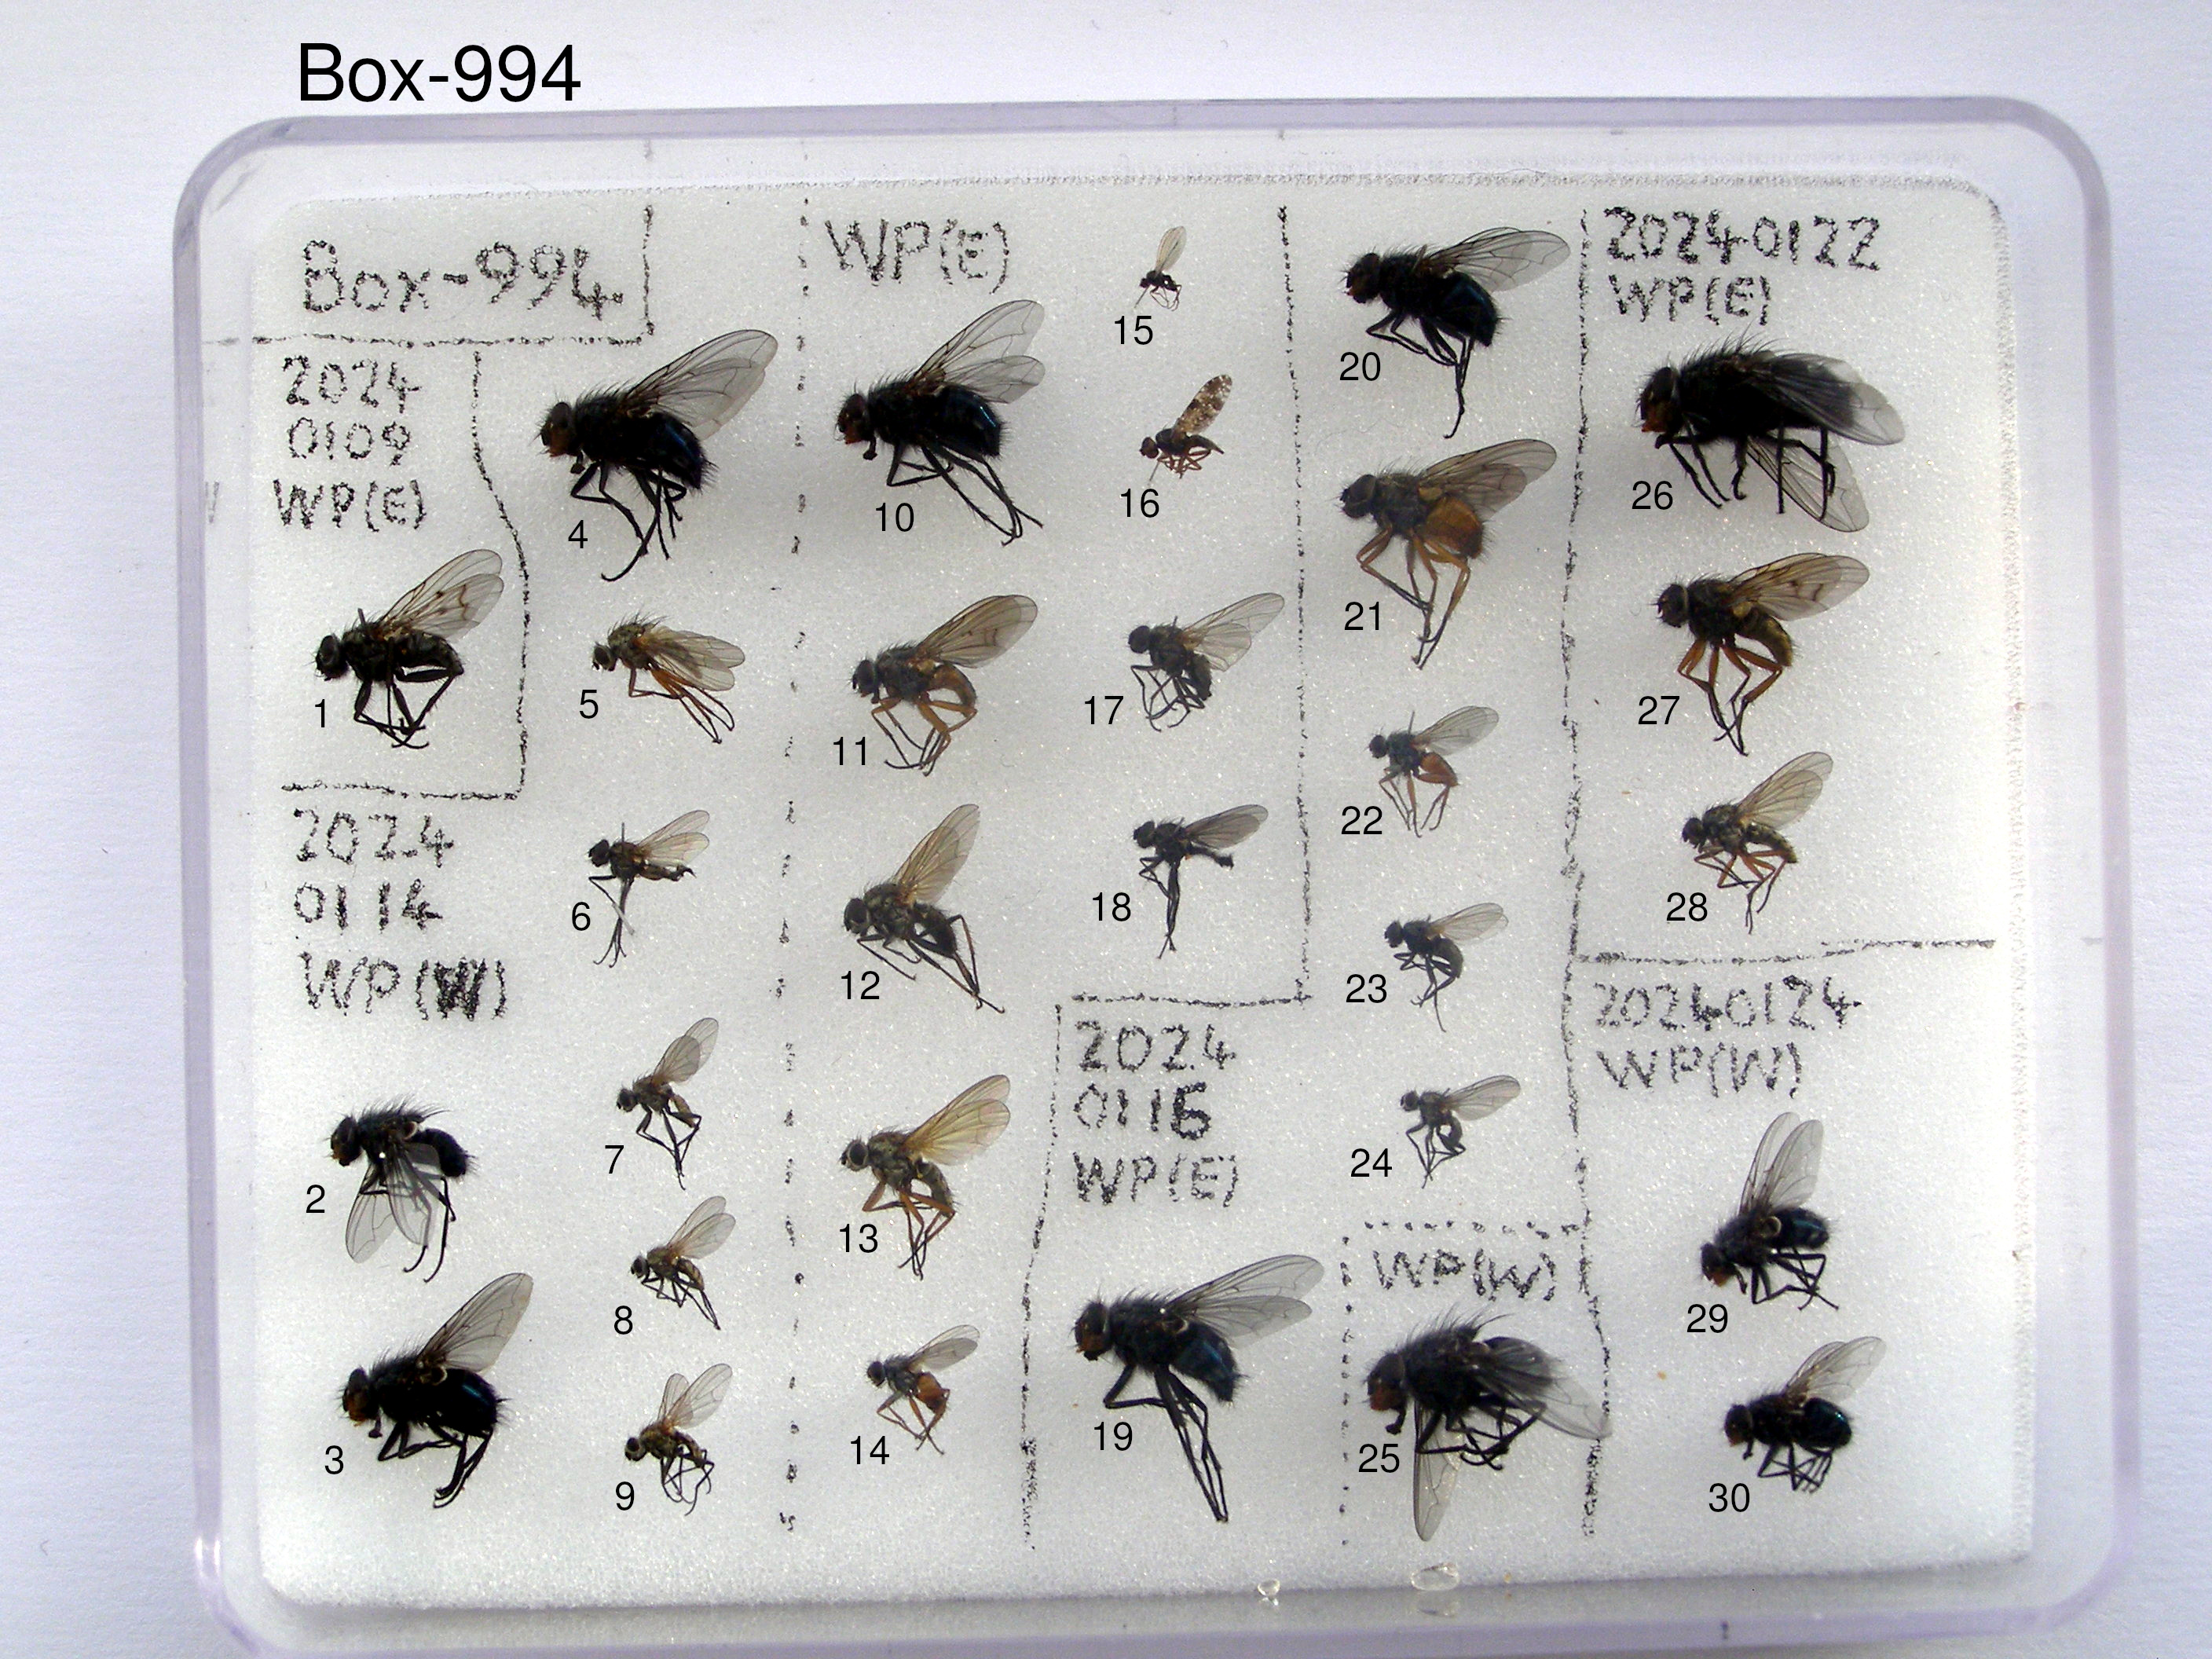 Box-994
Box-994
2024
0109
WP(E)
1
2024
0114
WP(W)
2
3
4
5
6
7
8
9
WP(E)
10
11
12
13
14
15
16
17
18
2024
0116
WP(E)
19
20
21
22
23
24
WP(W)
25
20240122
WP(E)
26
27
28
20240124
WP(W)
29
30